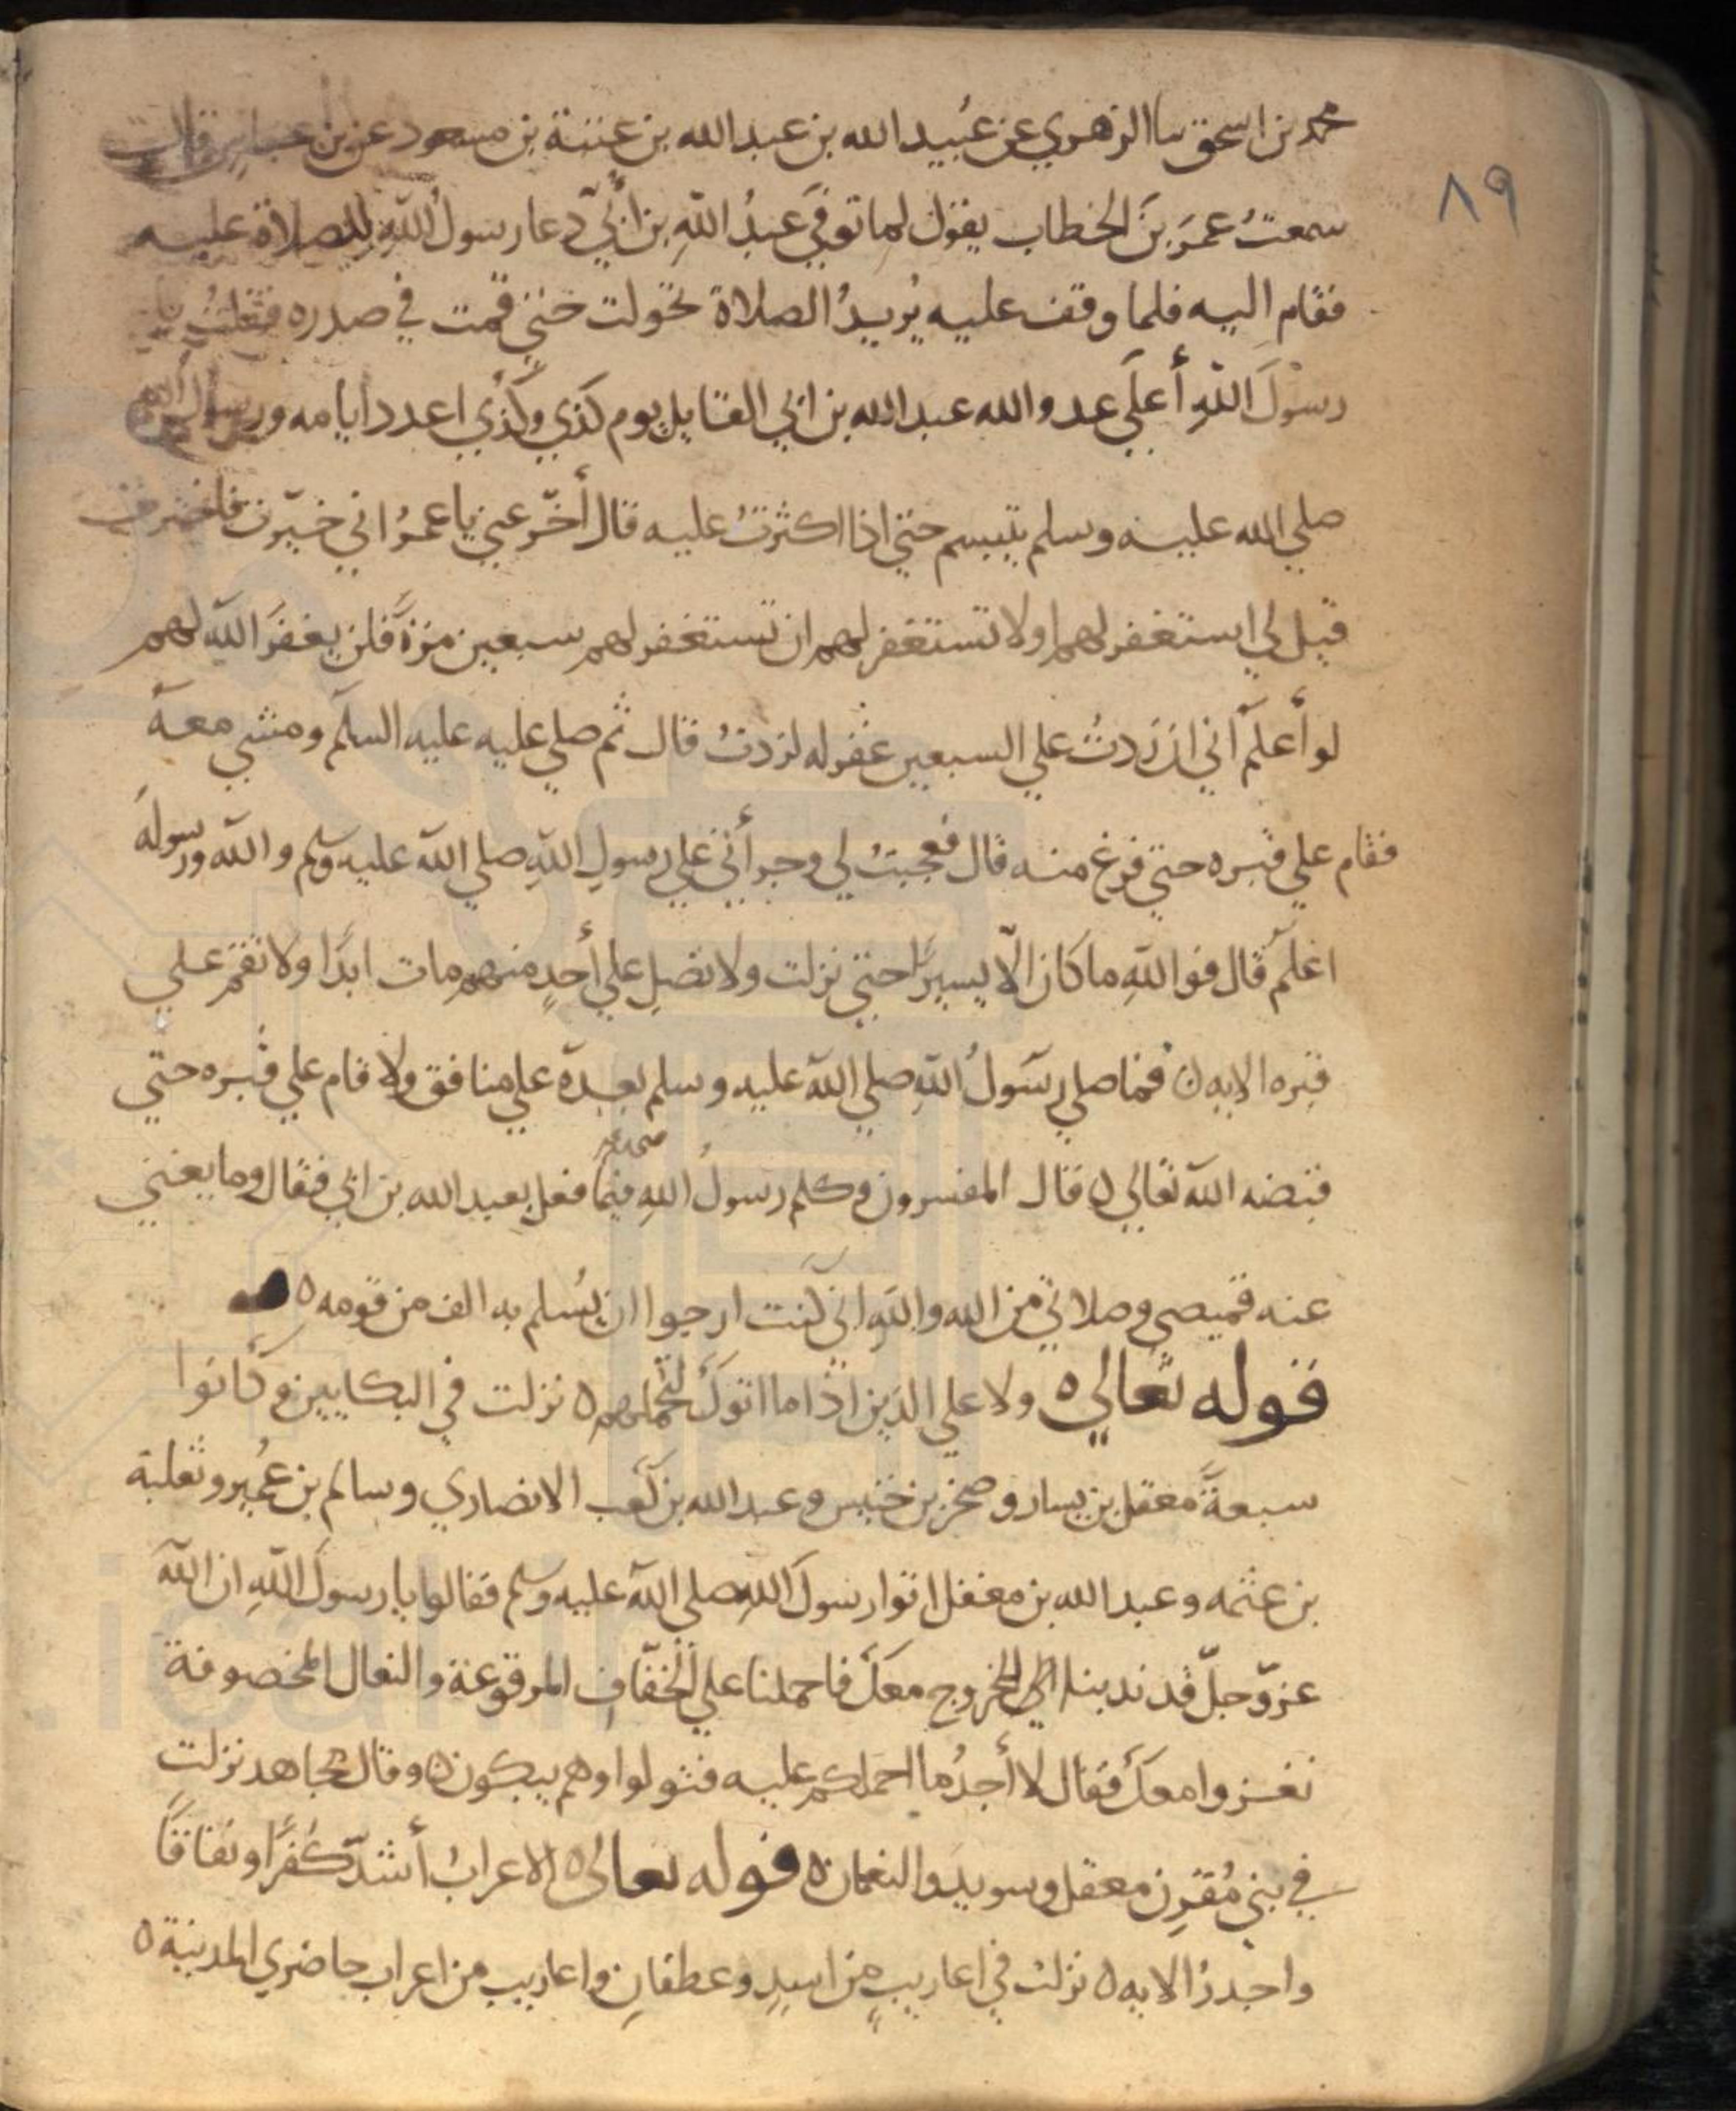 ٨٩
محمد بن اسحق سا الزهري عن عُبيد الله بن عبد الله بن عتبة بن مسعود عن بن عباس قال
سمعتُ عمرَ بنَ الخطاب يقول لما توفيَ عبدُ اللهِ بن أبيّ دعا رسولُ اللهِ للصلاة عليه
فقام اليه فلما وقف عليه يُريدُ الصلاة تحولت حتي قمت في صدره فقلتُ يا
رسولَ اللهِ أعلي عدو الله عبد الله بن ابي القايل يوم كذي وكذي اعدد ايامه ورسول الله
صلي الله عليه وسلم يتبسم حتي اذا اكثرتُ عليه قال أخّر عني يا عمرُ اني خيّرت فاخترت
قيل لي استغفر لهم او لا تستغفر لهم ان تستغفر لهم سبعين مرةً فلن يغفرَ الله لهم
لو أعلم أني ان زدتُ علي السبعين غفر له لزدتُ قال ثم صلي عليه عليه السلم ومشي معه
فقام علي قبره حتي فرغ منه قال فعجبتُ لي وجرأتي علي رسولِ اللهِ صلي الله عليه وسلم والله ورسوله
اعلم قال فوالله ما كان الّا يسيرًا حتي نزلت ولا تصلِ علي أحدٍ منهم مات ابدًا ولا تقم علي
قبره الايه ٥ فما صلي رسولُ اللهِ صلي الله عليه وسلم بعده علي منافق ولا قام علي قبره حتي
قبضه الله تعالي ٥ قال المفسرون وكلم رسولُ اللهِ فيما فعل بعبد الله بن ابي فقال وما يغني
عنه قميصي وصلاتي من الله واللهِ اني كنت ارجوا ان يُسلم به الف من قومه ٥
قوله تعالي ٥ ولا علي الذين اذا ما اتوكَ لتحملهم ٥ نزلت في البكايين وكانوا
سبعةً معقل بن يسار وصخر بن خنيس وعبد الله بن كعب الانصاري وسالم بن عُمير وثعلبة
بن عنمه وعبد الله بن مغفل اتوا رسولَ اللهِ صلي الله عليه وسلم فقالوا يا رسولَ اللهِ ان الله
عزّ وجلّ قد ندبنا الي الخروج معكَ فاحملنا علي الخفافِ المرقوعة والنعال المخصوفة
نغزوا معكَ فقال لا أجدُ ما احملكم عليه فتولوا وهم يبكون ٥ وقال مجاهد نزلت
في بني مُقرن معقل وسويد والنعمان ٥ قوله تعالي ٥ الاعرابُ أشدّ كفرًا ونفاقًا
واجدرُ الايه ٥ نزلت في اعاريبٍ من اسدٍ وغطفانِ واعاريب من اعراب حاضري المدينة ٥